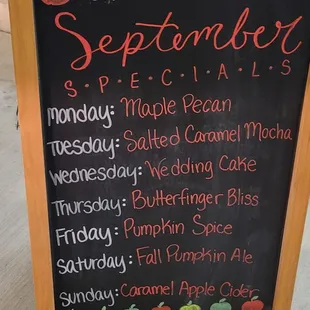 September
S·P·E·C·I·A·L·S
Monday: Maple Pecan
Tuesday: Salted Caramel Mocha
Wednesday: Wedding Cake
Thursday: Butterfinger Bliss
Friday: Pumpkin Spice
Saturday: Fall Pumpkin Ale
Sunday: Caramel Apple Cider